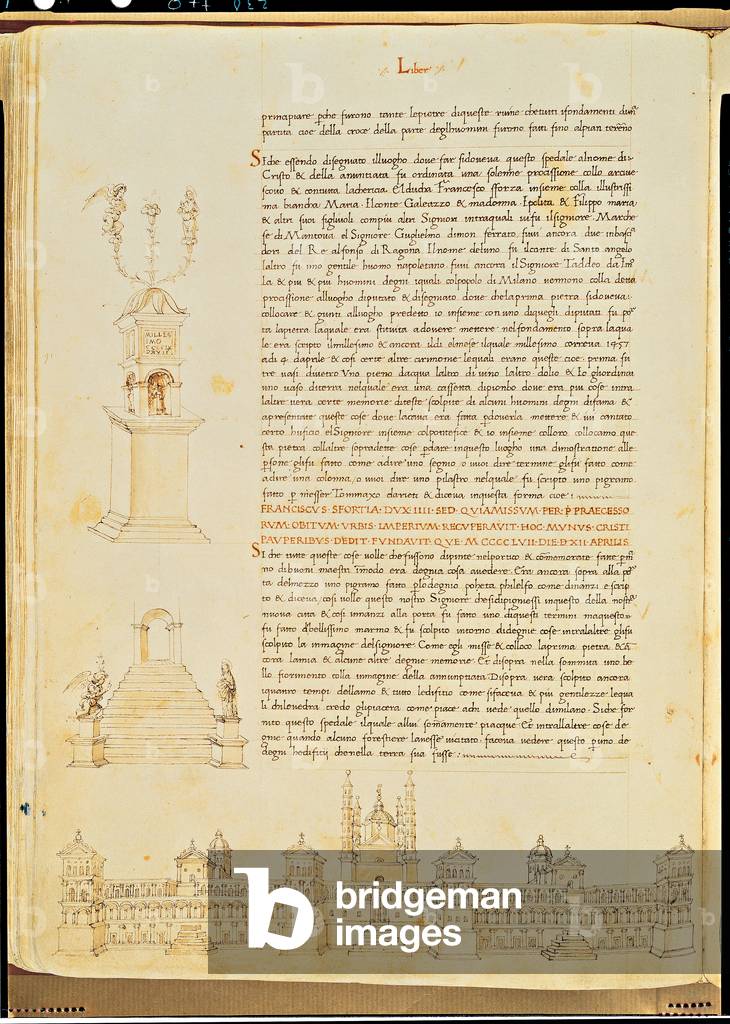 Liber
principiare pche furono tante lepietre diqueste ruine chetutti ifondamenti duna
partita cioe della croce della parte deglhuomini furono fatti fino alpian terreno
Siche essendo disegnato illuogho dove far sidoveva questo spedale alnome di
Cristo & della anuntiata fu ordinata una solenne processione collo arcive
scovo & contutta lachericia. Elducha Francesco sforza insieme colla illustrissi
ma biancha Maria. Ilconte Galeazzo & madonna Ipolita & Filippo maria
& altri suoi figliuoli compiu altri Signori intraquali vifu ilsignore Marche
se di Mantova el Signore Guglielmo dimon ferrato. fuvi ancora due imbasci
dori del Re alfonso di Ragona. Ilnome deluno fu ilconte di Santo angelo
laltro fu uno gentile huomo napoletano. fuvi ancora il Signore Taddeo da
la & piu & piu huomini degni iquali colpopolo di Milano vennono colla detta
processione alluogho diputato & disegnato dove chelaprima pietra sidoveva
collocare & giunti alluogho predetto io insieme con uno diquegli diputati fu
ta lapietra laquale era stituita adovere mettere nelfondamento sopra laqua
le era scripto ilmillesimo & ancora ildi elmese ilquale millesimo correva 1457
adi 4 daprile & cosi certe altre cirimonie lequali erano queste cioe. prima fu
tre vasi divetro Uno pieno dacqua laltro di vino laltro dolio & Io ghordinai
uno vaso diterra nelquale era una cassetta dipionbo dove era piu cose intra
laltre vera certe memorie diteste scolpite di alcuni huomini degni difama &
apresentate queste cose dove lacava era fatta pdoverla mettere & ivi cantato
certo huficio elSignore insieme colpontefice & io insieme colloro collocamo que
sta pietra collaltre sopradette cose pdare inquesto luogho una dimostratione alle
psone glifu fatto come adire uno segno o vuoi dire termine glifu fatto come
adire una colonna o vuoi dire uno pilastro nelquale fu scripto uno pigramo
fatto p messer Tommaxo darieti & diceva inquesta forma cioe:
FRANCISCVS SFORTIA DVX IIII SED QVI AMISSVM PER PRAECESSO
RVM OBITVM VRBIS IMPERIVM RECVPERAVIT HOC MVNVS CRISTI
PAVPERIBVS DEDIT FVNDAVITQVE M CCCC LVII DIE D XII APRILIS
Si che tutte queste cose volle chefussono dipinte nelportico & commemorate
no dibuoni maestri imodo era degnia cosa avedere. Era ancora sopra alla
ta delmezzo uno pigramo fatto plodegnio poheta phi lelfo come dinanzi e scrip
to & diceva cosi volle questo nostro Signore chesidipignessi inquesto della
nuova citta & cosi innanzi alla porta fu fatto uno diquesti termini maquesto
fu fatto dbellissimo marmo & fu scolpito intorno didegnie cose intralaltre glifu
scolpito la immagine delsignore Come egli misse & colloco laprima pietra
cora lamia & alcune altre degnie memorie. Et disopra nella sommita uno be
llo fiorimento colla immagine della annunptiata. Disopra vera scolpito ancora
iquatro tempi dellanno & tutto ledifitio come sifaceva & piu gentilezze lequa
li chilevedra credo glipiacera come piace achi vede quello dimilano. Siche for
nito questo spedale ilquale allui sommamente piacque Et intrallaltre cose de
gnie quando alcuno forestiere lavesse vicitato. faceva vedere questo p uno de
degni hedifitii chenella terra sua fusse:
MILLES
IMO
bridgeman
images